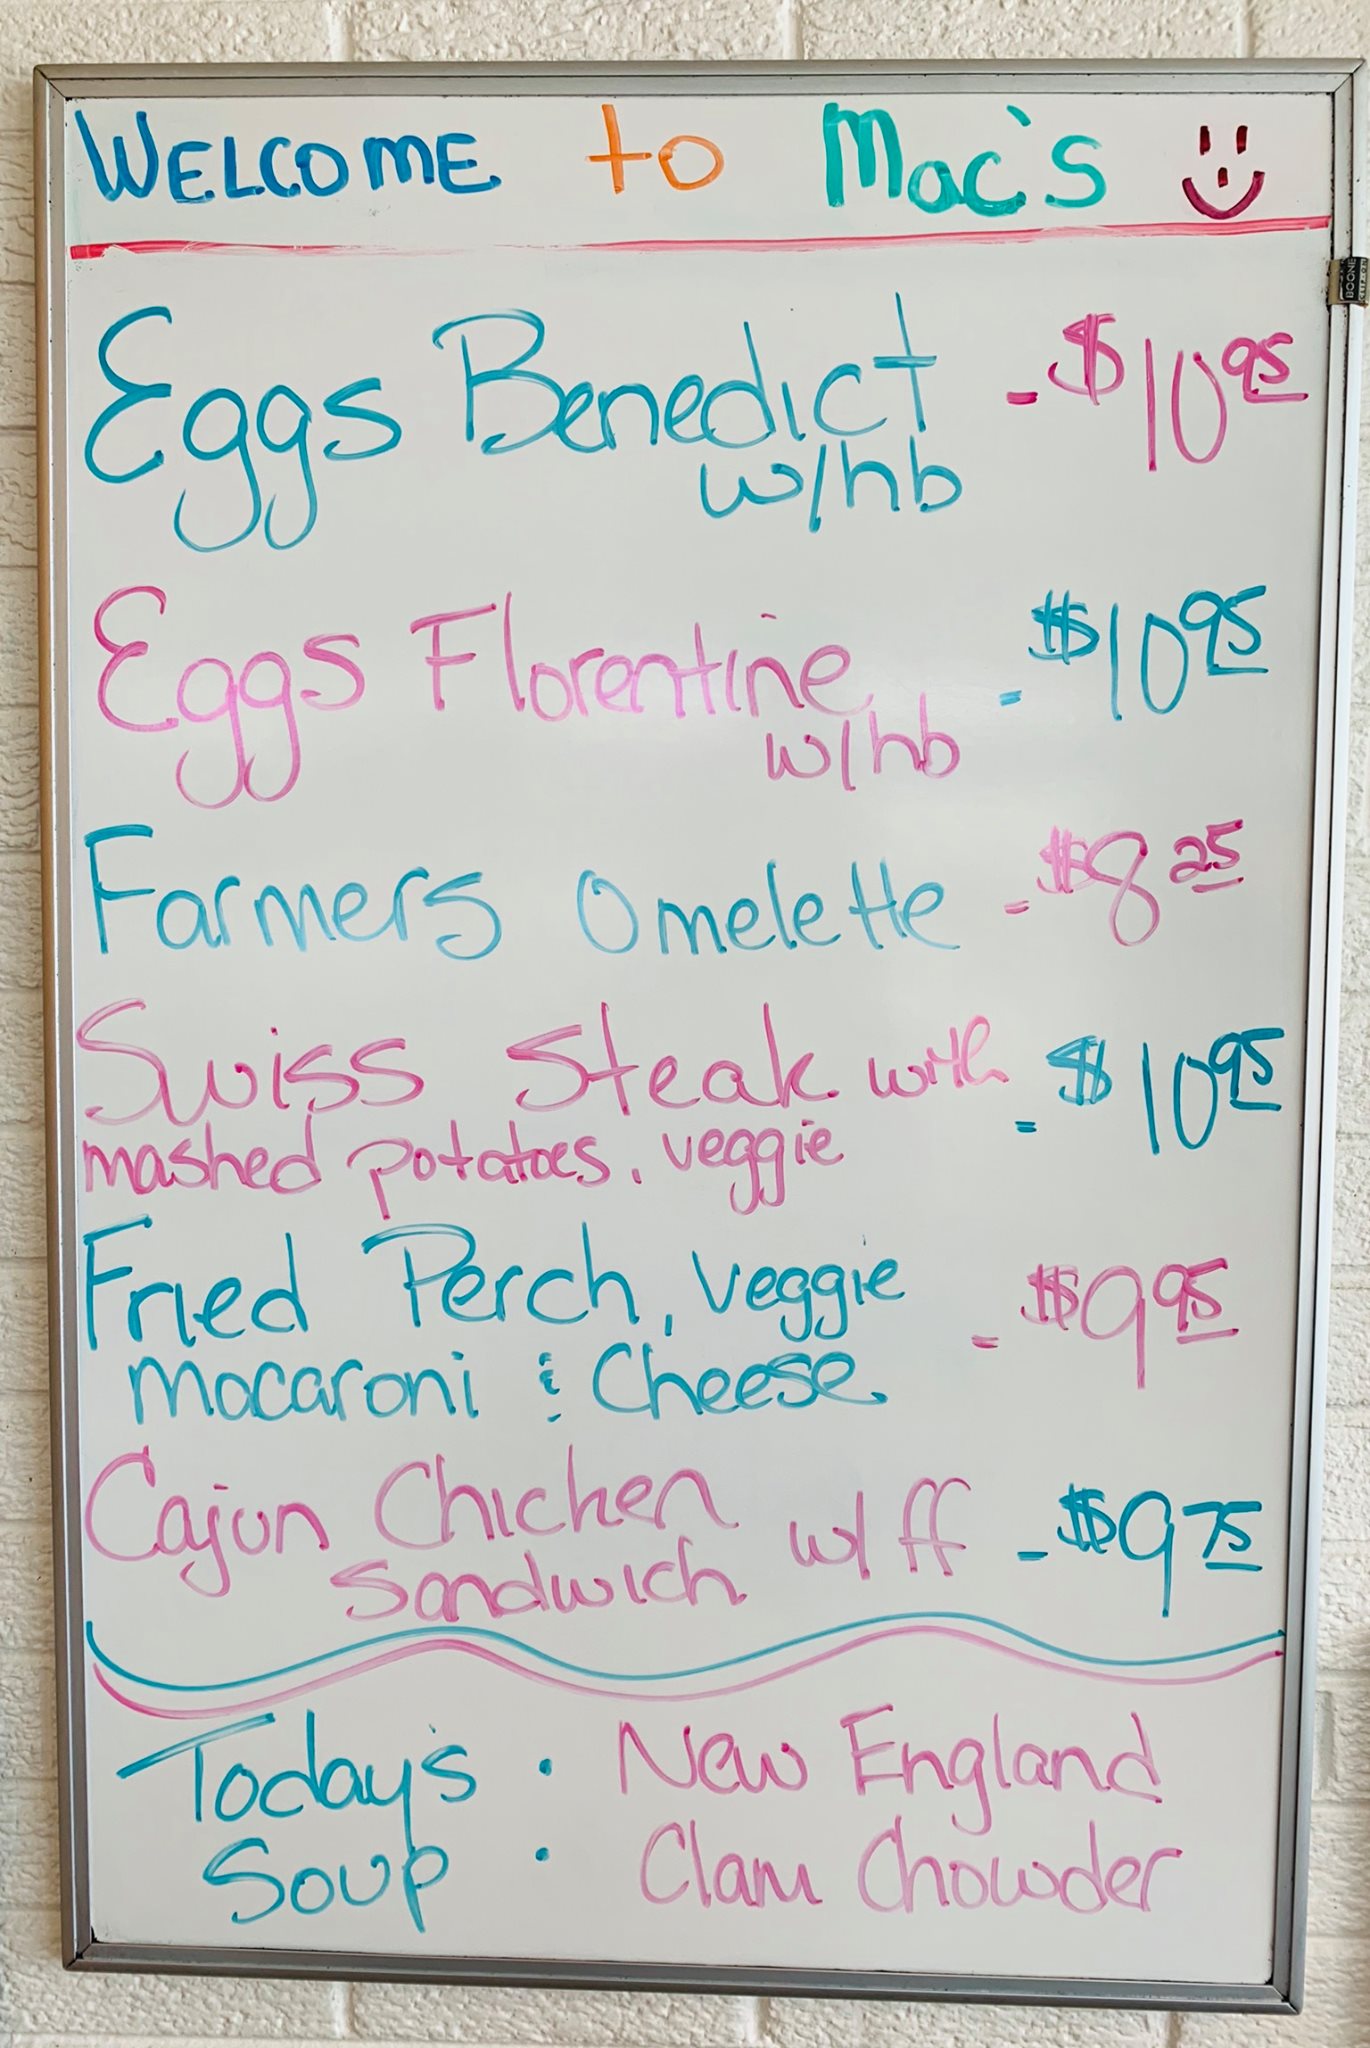 WELCOME to Mac's
Eggs Benedict - $10.95
w/hb
Eggs Florentine - $10.95
w/hb
Farmers Omelette - $8.25
Swiss Steak with - $10.95
mashed potatoes, veggie
Fried Perch, veggie - $9.95
macaroni & Cheese
Cajun Chicken w/ ff - $9.75
Sandwich
Today's : New England
Soup Clam Chowder
BOONE